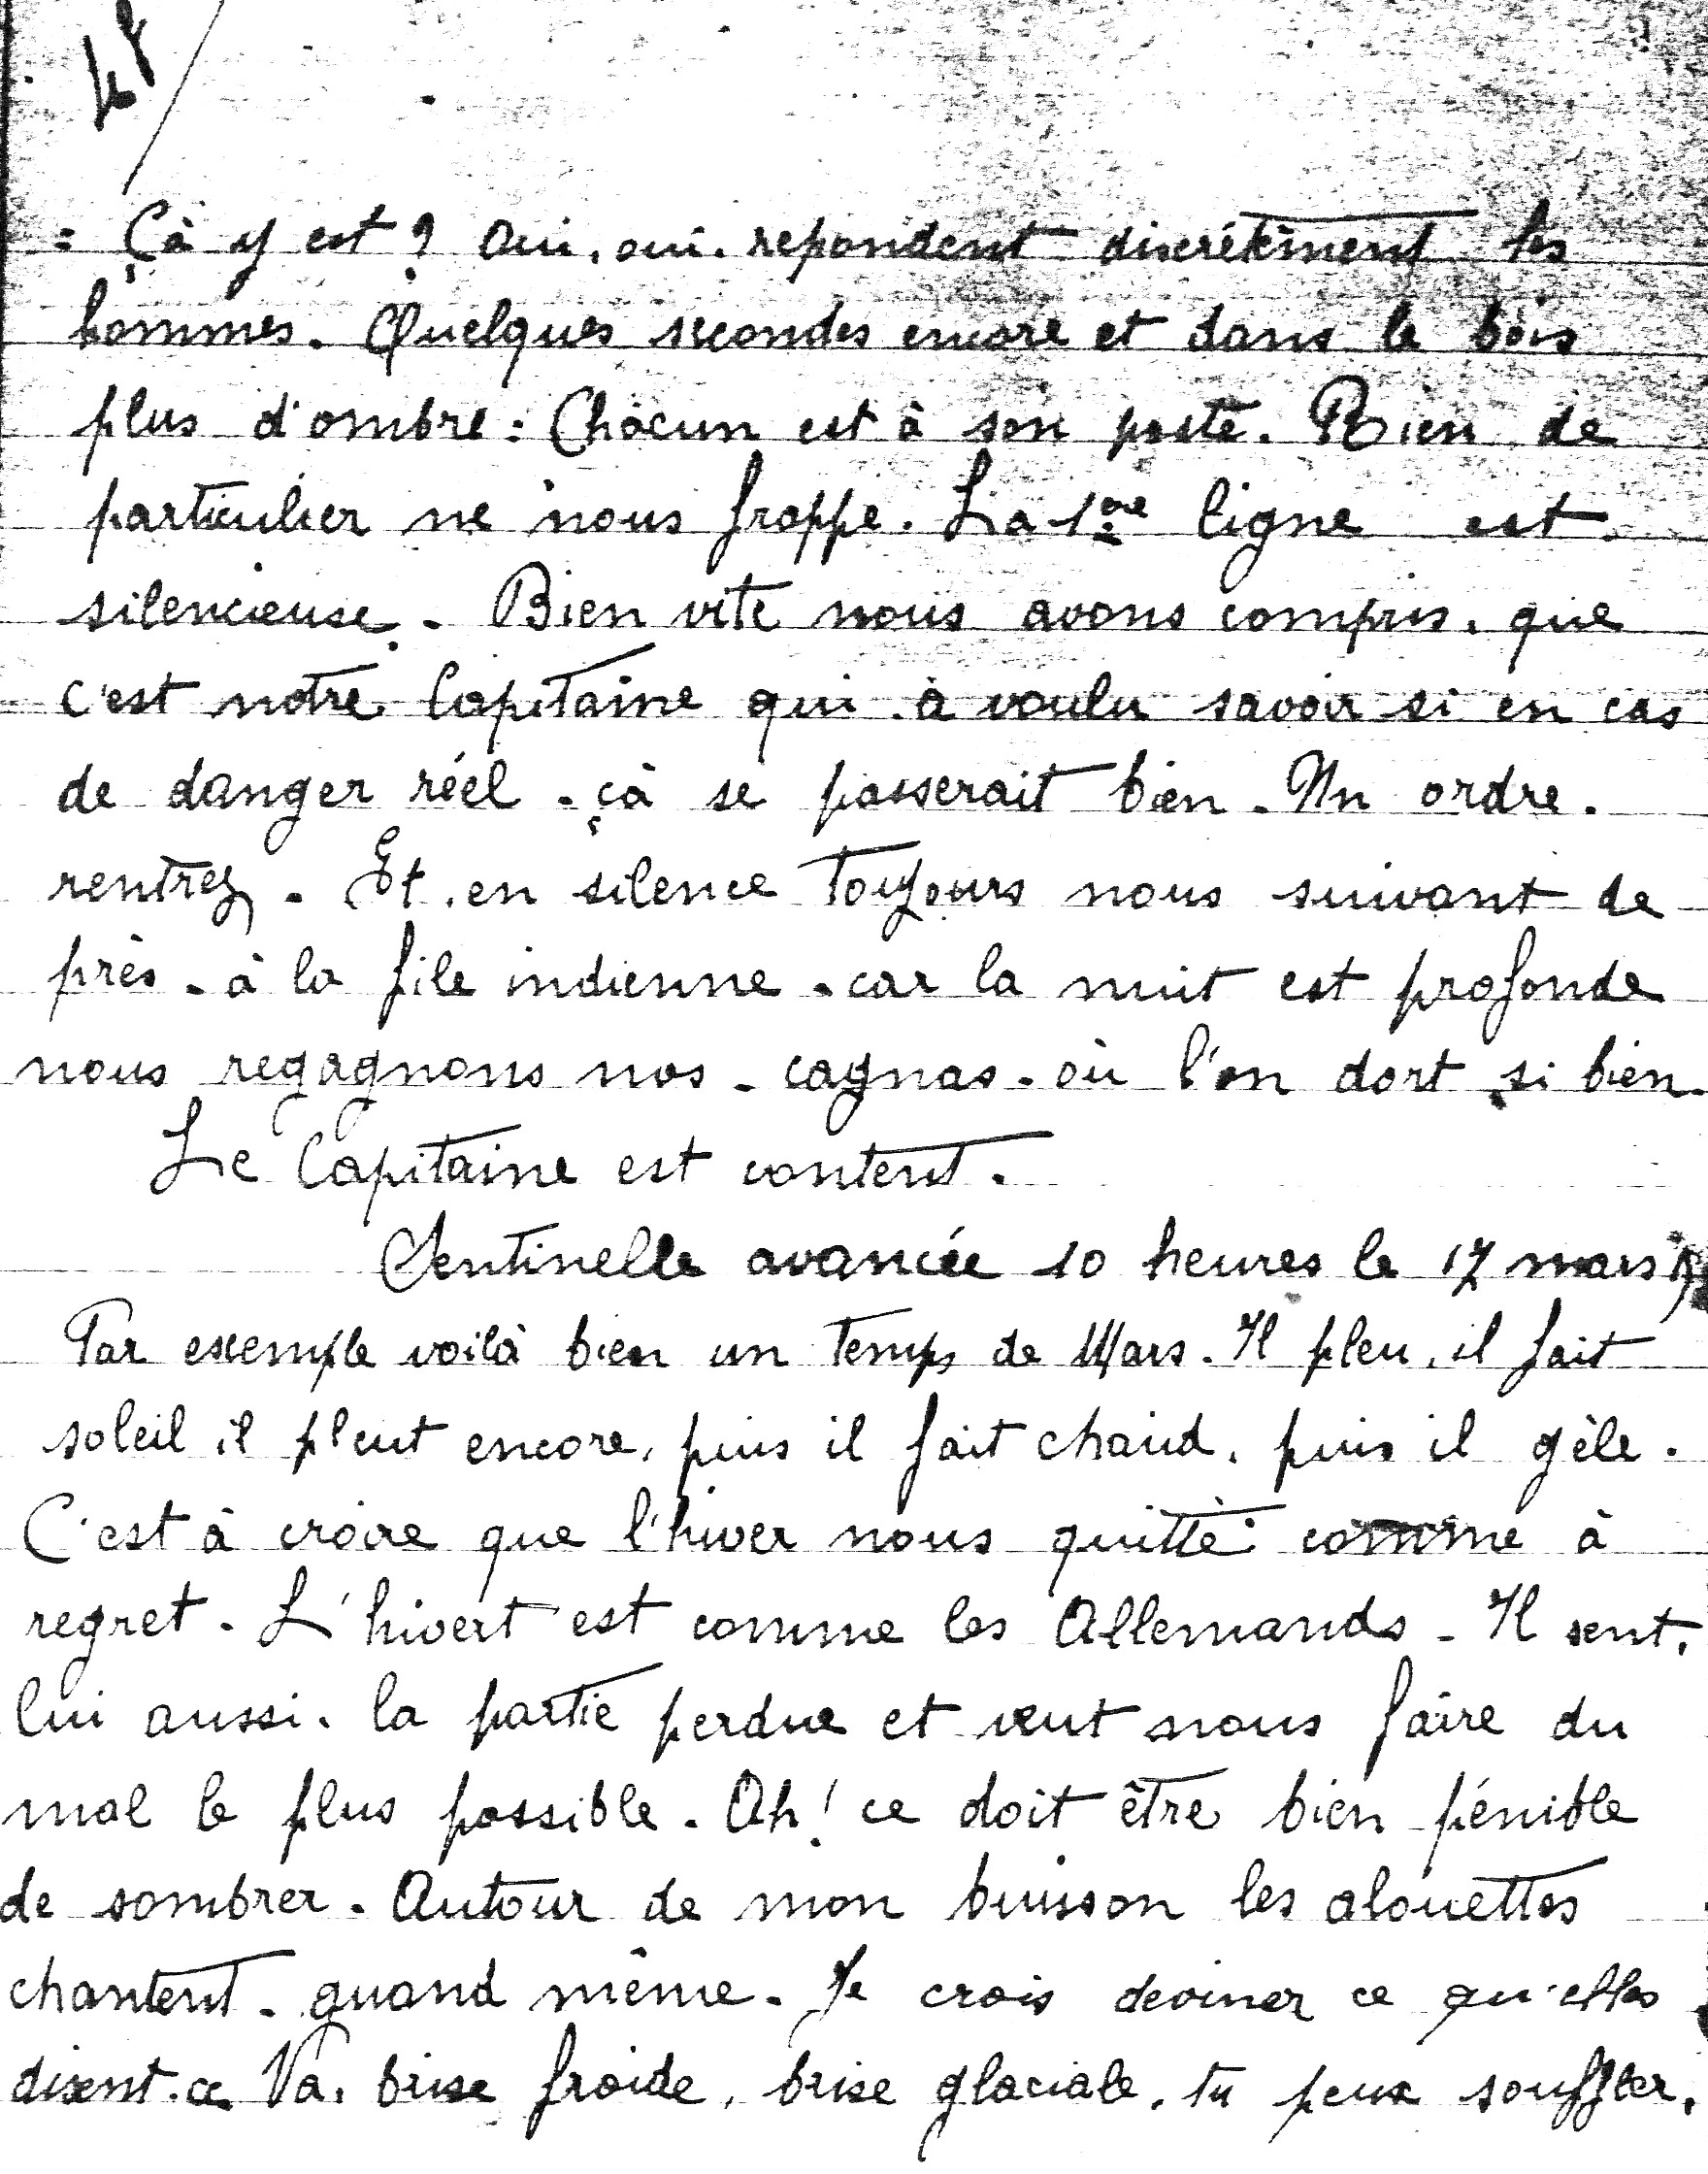 = Çà y est ? Oui, oui. repondent discrétement les
hommes. Quelques secondes encore et dans le bois
plus d'ombre : Chacun est à son poste. Rien de
particulier ne nous frappe. La 1ère ligne est
silencieuse. - Bien vite nous avons compris. que
c'est notre Capitaine qui à voulu savoir si en cas
de danger réel - çà se passerait bien - Un ordre.
rentrez - Et en silence toujours nous suivant de
près - à la file indienne - car la nuit est profonde
nous regagnons nos - cagnas - où l'on dort si bien.
Le Capitaine est content.
Sentinelle avancée 10 heures le 17 mars
Par exemple voilà bien un temps de Mars. Il pleu, il fait
soleil il pleut encore, puis il fait chaud, puis il gèle.
C'est à croire que l'hiver nous quitte comme à
regret. L'hivert est comme les Allemands - Il sent,
lui aussi. la partie perdue et veut nous faire du
mal le plus possible. Ah! ce doit être bien pénible
de sombrer. Autour de mon buisson les alouettes
chantent - quand même. Je crois deviner ce qu'elles
disent. Va, brise froide, brise glaciale, tu peux souffler,